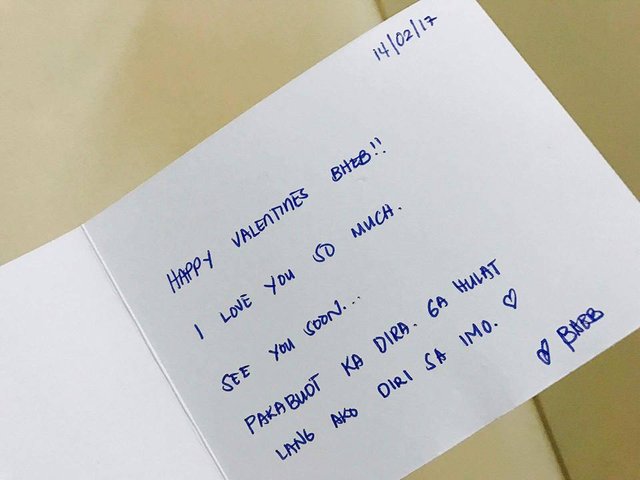 14/02/17
HAPPY VALENTINES BHEB!!
I LOVE YOU SO MUCH.
SEE YOU SOON...
PAKABUOT KA DIRA. GA HULAT
LANG AKO DIRI SA IMO. ♡
♡ BHEB